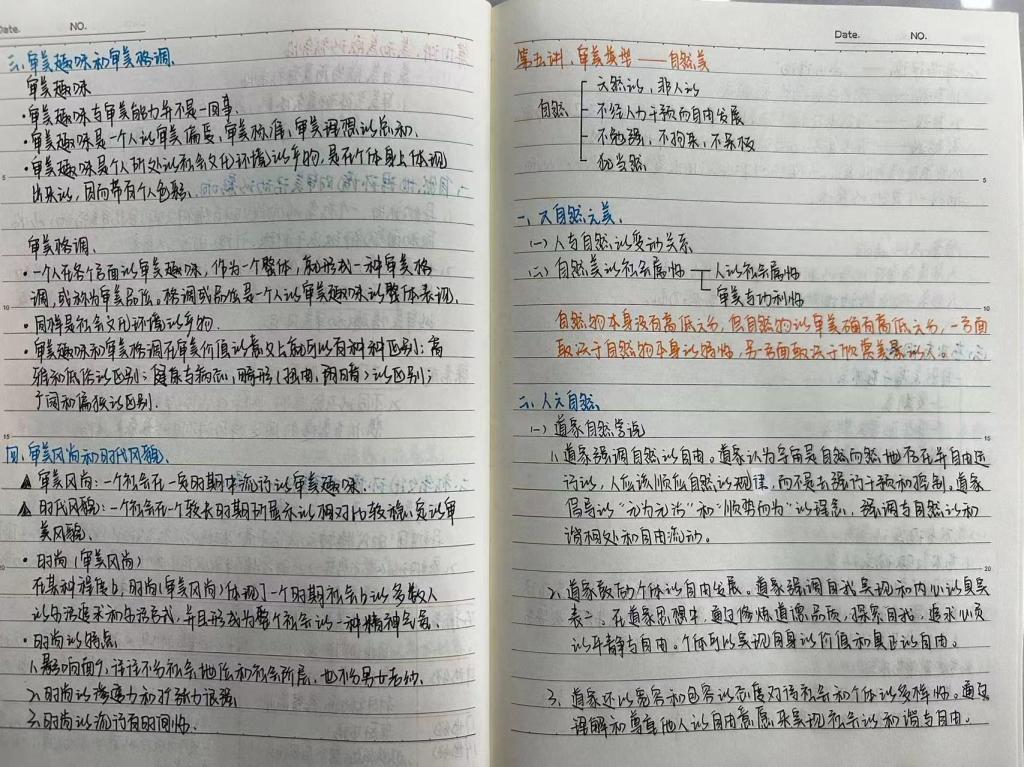 Date.
NO.
三.审美趣味和审美格调.
审美趣味
·审美趣味与审美能力并不是一回事.
·审美趣味是一个人的审美偏爱、审美标准、审美理想的总和.
·审美趣味是个人所处的社会文化环境的产物,是在个体身上体现
出来的,因而带有个人色彩.
5
审美格调.
·一个人在各个方面的审美趣味,作为一个整体,就形成一种审美格
调,或称为审美品位。格调或品位是一个人的审美趣味的整体表现.
10
·同样是社会文化环境的产物.
·审美趣味和审美格调在审美价值的意义上就可以有种种区别:高
雅和低俗的区别;健康与病态,畸形(扭曲,阴暗)的区别;
广阔和偏狭的区别.
15
四.审美风尚和时代风貌.
▲ 审美风尚:一个社会在一定时期中流行的审美趣味.
▲ 时代风貌:一个社会在一个较长时期所显示的相对比较稳定的审
美风貌.
·时尚(审美风尚)
20
在某种程度上,时尚(审美风尚)体现了一个时期社会上的多数人
的生活追求和生活方式,并且形成为整个社会的一种精神气氛.
·时尚的特点
1.影响面广,往往不分社会地位和社会阶层,也不分男女老幼.
2.时尚的渗透力和扩张力很强
3.时尚的流行有时间性.
Date.
NO.
第五讲.审美类型——自然美
自然
天然的,非人的
不经人力干预而自由发展
不勉强,不拘束,不呆板
犹当然
5
一.天自然之美.
(一)人与自然的变动关系
(二)自然美的社会属性
人的社会属性
审美与功利性
10
自然物本身没有高低之分,但自然物的审美确有高低之分,一方面
取决于自然物本身的特性,另一方面取决于欣赏美景的人。
二.人之自然
(一)道家自然学说
15
1.道家强调自然的自由。道家认为宇宙是自然而然地存在并自由运
行的,人应该顺应自然的规律,而不是去强行干预和控制。道家
倡导的“无为无治”和“顺势而为”的理念,强调与自然的和
谐相处和自由流动。
20
2.道家鼓励个体的自由发展。道家强调自我实现和内心的真实
表达.在道家思想中,通过修炼道德品质,探索自我,追求心灵
的平静与自由。个体可以实现自身的价值和真正的自由。
3.道家还以宽容和包容的态度对待社会和个体的多样性。通过
理解和尊重他人的自由意愿,来实现社会的和谐与自由。